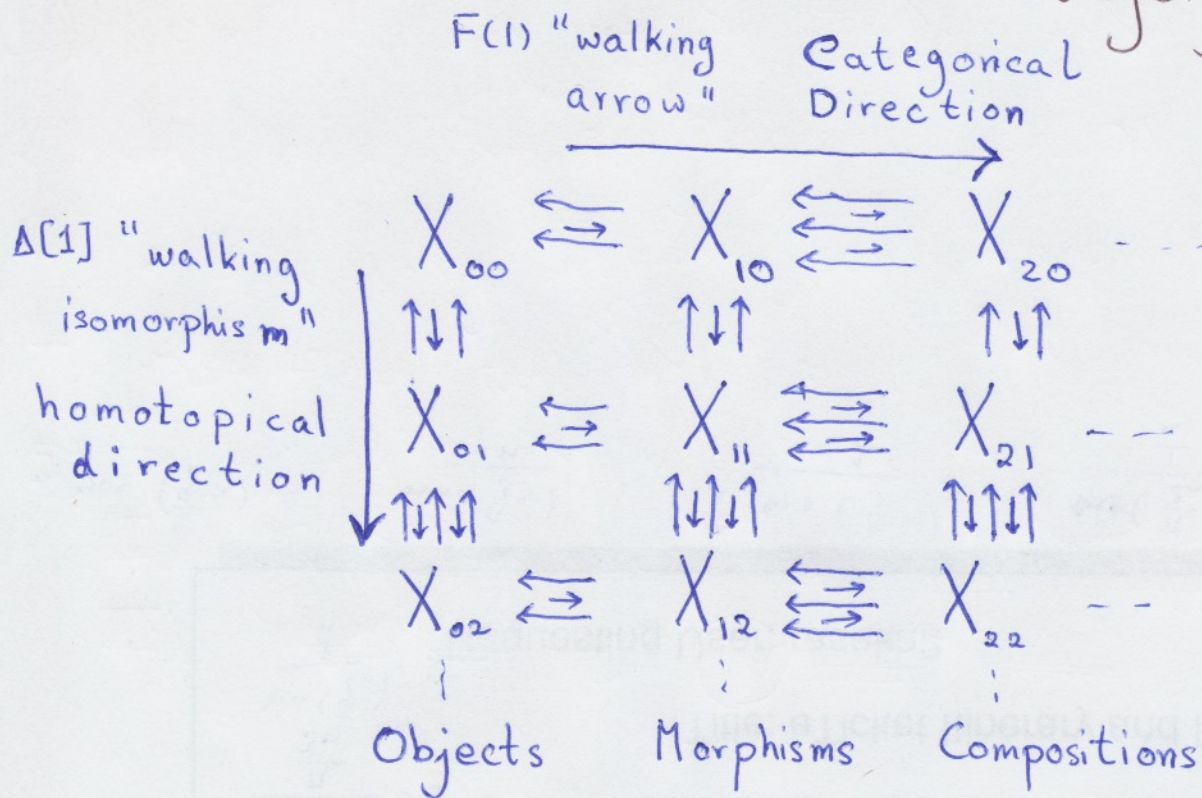 F(1) "walking arrow"
Categorical Direction
Δ[1] "walking isomorphism"
homotopical direction
X₀₀ X₁₀ X₂₀
X₀₁ X₁₁ X₂₁
X₀₂ X₁₂ X₂₂
Objects Morphisms Compositions